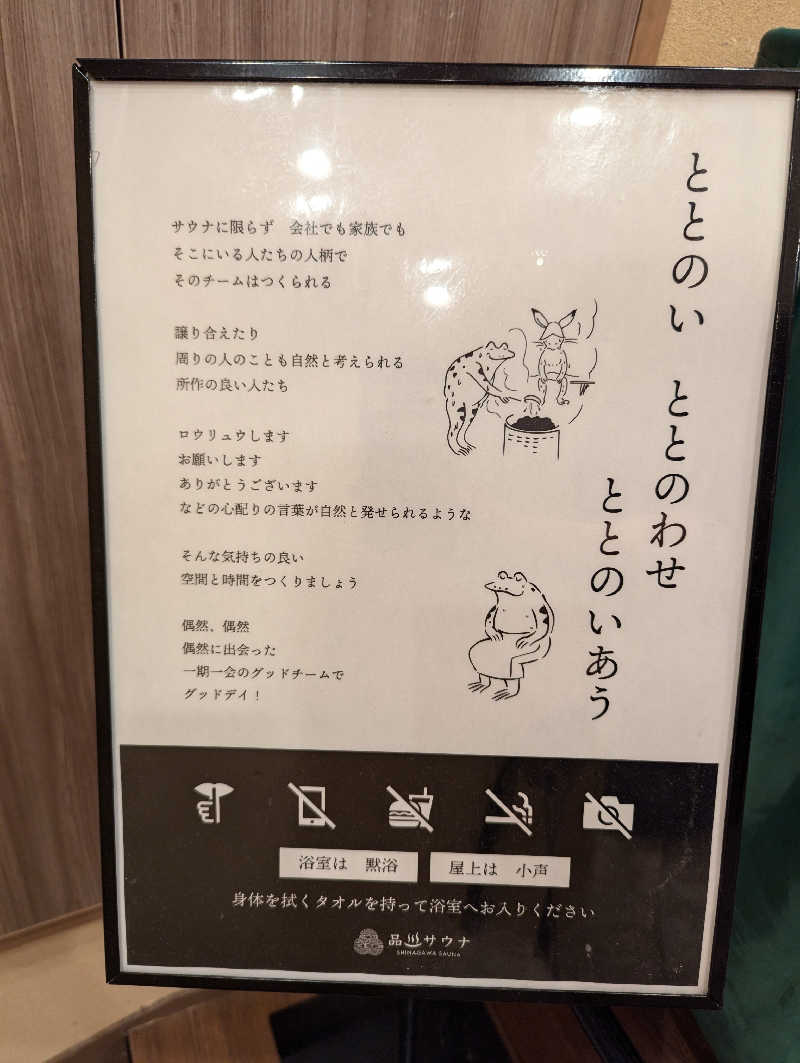 ととのい　ととのわせ
ととのいあう
サウナに限らず　会社でも家族でも
そこにいる人たちの人柄で
そのチームはつくられる
譲り合えたり
周りの人のことも自然と考えられる
所作の良い人たち
ロウリュウします
お願いします
ありがとうございます
などの心配りの言葉が自然と発せられるような
そんな気持ちの良い
空間と時間をつくりましょう
偶然、偶然
偶然に出会った
一期一会のグッドチームで
グッドデイ！
浴室は　黙浴
屋上は　小声
身体を拭くタオルを持って浴室へお入りください
品川サウナ
SHINAGAWA SAUNA